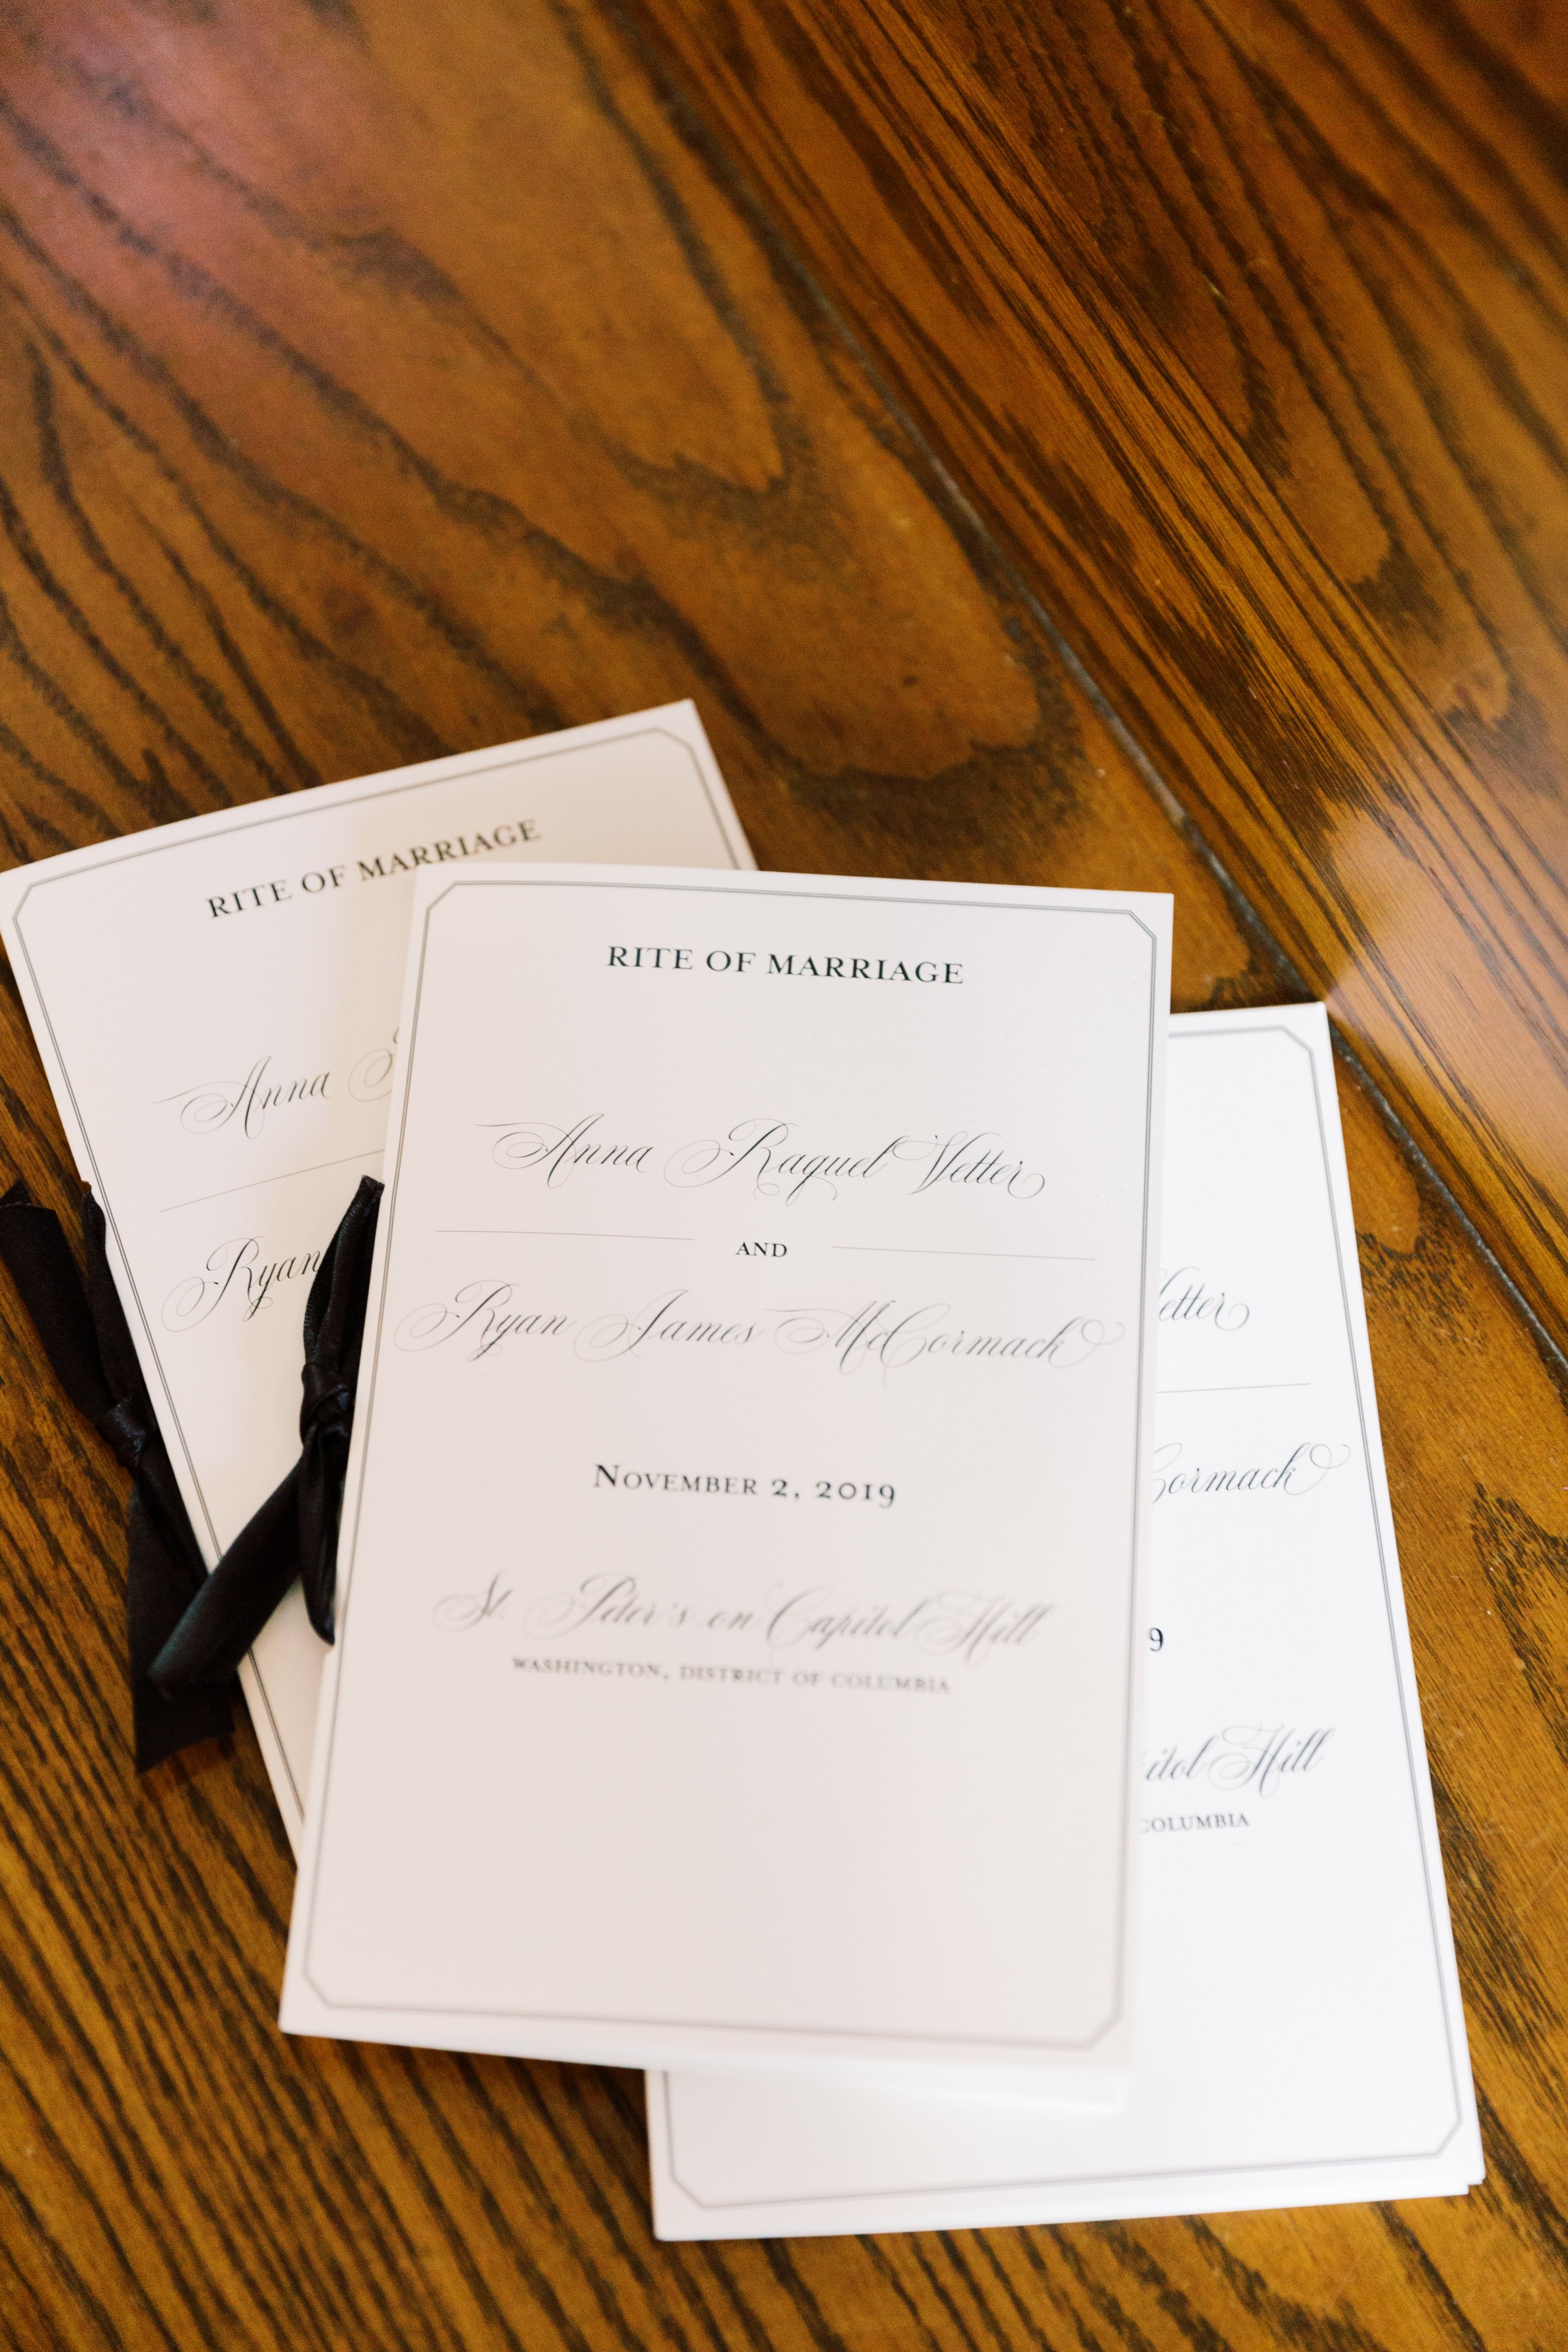 RITE OF MARRIAGE
Anna
Ryan
RITE OF MARRIAGE
Anna Raquel Vetter
AND
Ryan James McCormack
NOVEMBER 2, 2019
St. Peter's on Capitol Hill
WASHINGTON, DISTRICT OF COLUMBIA
etter
Cormack
9
itol Hill
COLUMBIA